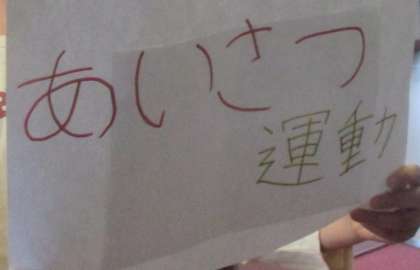 あいさつ
運動